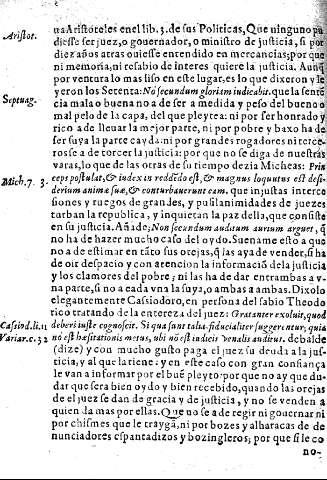 na Aristoteles enel lib. 3. de sus Politicas, Que ninguno pu
Aristot.
diesse ser juez, o governador, o ministro de justicia, si por
diez años atras ouiesse entendido en mercancias; por que
ni memoria, ni resabio de interes quiere la justicia. Aunq̃
por ventura lo mas liso en este lugar, es lo que dixeron y le
Septuag.
yeron los Setenta: No secundum gloriam indicabit. que la sentẽ
cia mala o buena no a de ser a medida y peso del bueno o
mal pelo de la capa, del que pleytea: ni por ser honrado y
rico a de lleuar la mejor parte, ni por pobre y baxo ha de
ser suya la parte cayda: ni por grandes rogadores ni terce-
rosse a de torcer la justicia: por que no se diga de nuestras
varas, lo que de las otras de su tiempo dezia Micheas: Prin
Mich. 7. 3.
ceps postulat, & iudex in reddẽdo est, & magnus loquutus est desi-
derium animæ suæ, & conturbauerunt eam. que injustas interce
siones y ruegos de grandes, y pusilanimidades de juezes
turban la republica, y inquietan la paz della, que cõsiste
en su justicia. Añade; Non secundum auditum aurium arguet, q̃
no ha de hazer mucho caso del oydo. Suename esto a quo
no a de estimar en tãto sus orejas, q̃ las aya de vender, si ha
de oir despacio y con atencion la informaciõ dela justicia
y los clamores del pobre; ni las ha de dar entrambas a v-
na parte, si no a cada vna la suya, o ambas a ambas. Dixolo
elegantemente Cassiodoro, en persona del sabio Theodo
rico tratando de la entereza del juez: Gratanter exoluit, quod
Cassiod. li. 11
deberi iuste cognoscit. Si qua sunt talia fiducialiter suggerentur, quia
Variar. c. 32
nõ est hæsitationis metus, ubi nõ est iudicis venalis auditus. debalde
(dize) y con mucho gusto paga el juez su deuda a la jus-
ticia, y al que la tiene: y en este caso con gran confiança
le van a informar por el buẽ pleyto: por que no ay que du-
dar que sera bien oydo y bien recebido, quando las orejas
de el juez se dan de gracia y de justicia, y no se venden a
quien da mas por ellas. Que no se a de regir ni gouernar ni
por chismes que le traygã, ni por bozes y alharacas de de
nunciadores espantadizos y bozingleros; por que si le co
no-